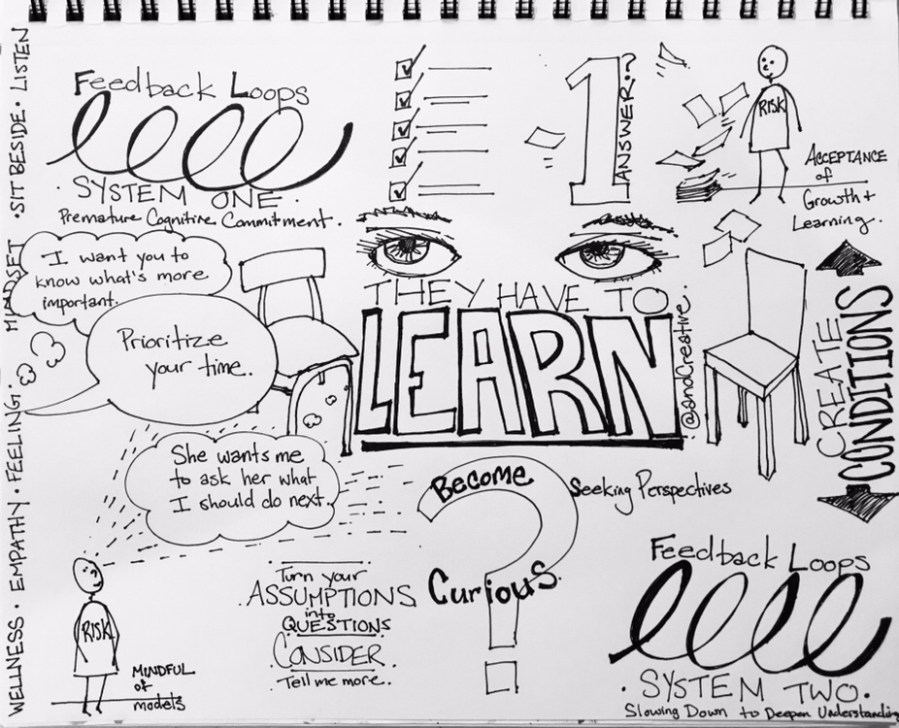 WELLNESS · EMPATHY · FEELING · MINDSET · SIT BESIDE · LISTEN
Feedback Loops
· SYSTEM ONE ·
Premature Cognitive Commitment.
1
ANSWER?
RISK
ACCEPTANCE
of
Growth +
Learning.
I want you to
know what's more
important.
Prioritize
your time.
THEY HAVE TO
LEARN
@andCreative.
CREATE
CONDITIONS
She wants me
to ask her what
I should do next.
RISK
MINDFUL
of
models
Turn your
ASSUMPTIONS
into
QUESTIONS
CONSIDER
Tell me more.
Become
Curious.
?
Seeking Perspectives
Feedback Loops
· SYSTEM TWO ·
Slowing Down to Deepen Understanding